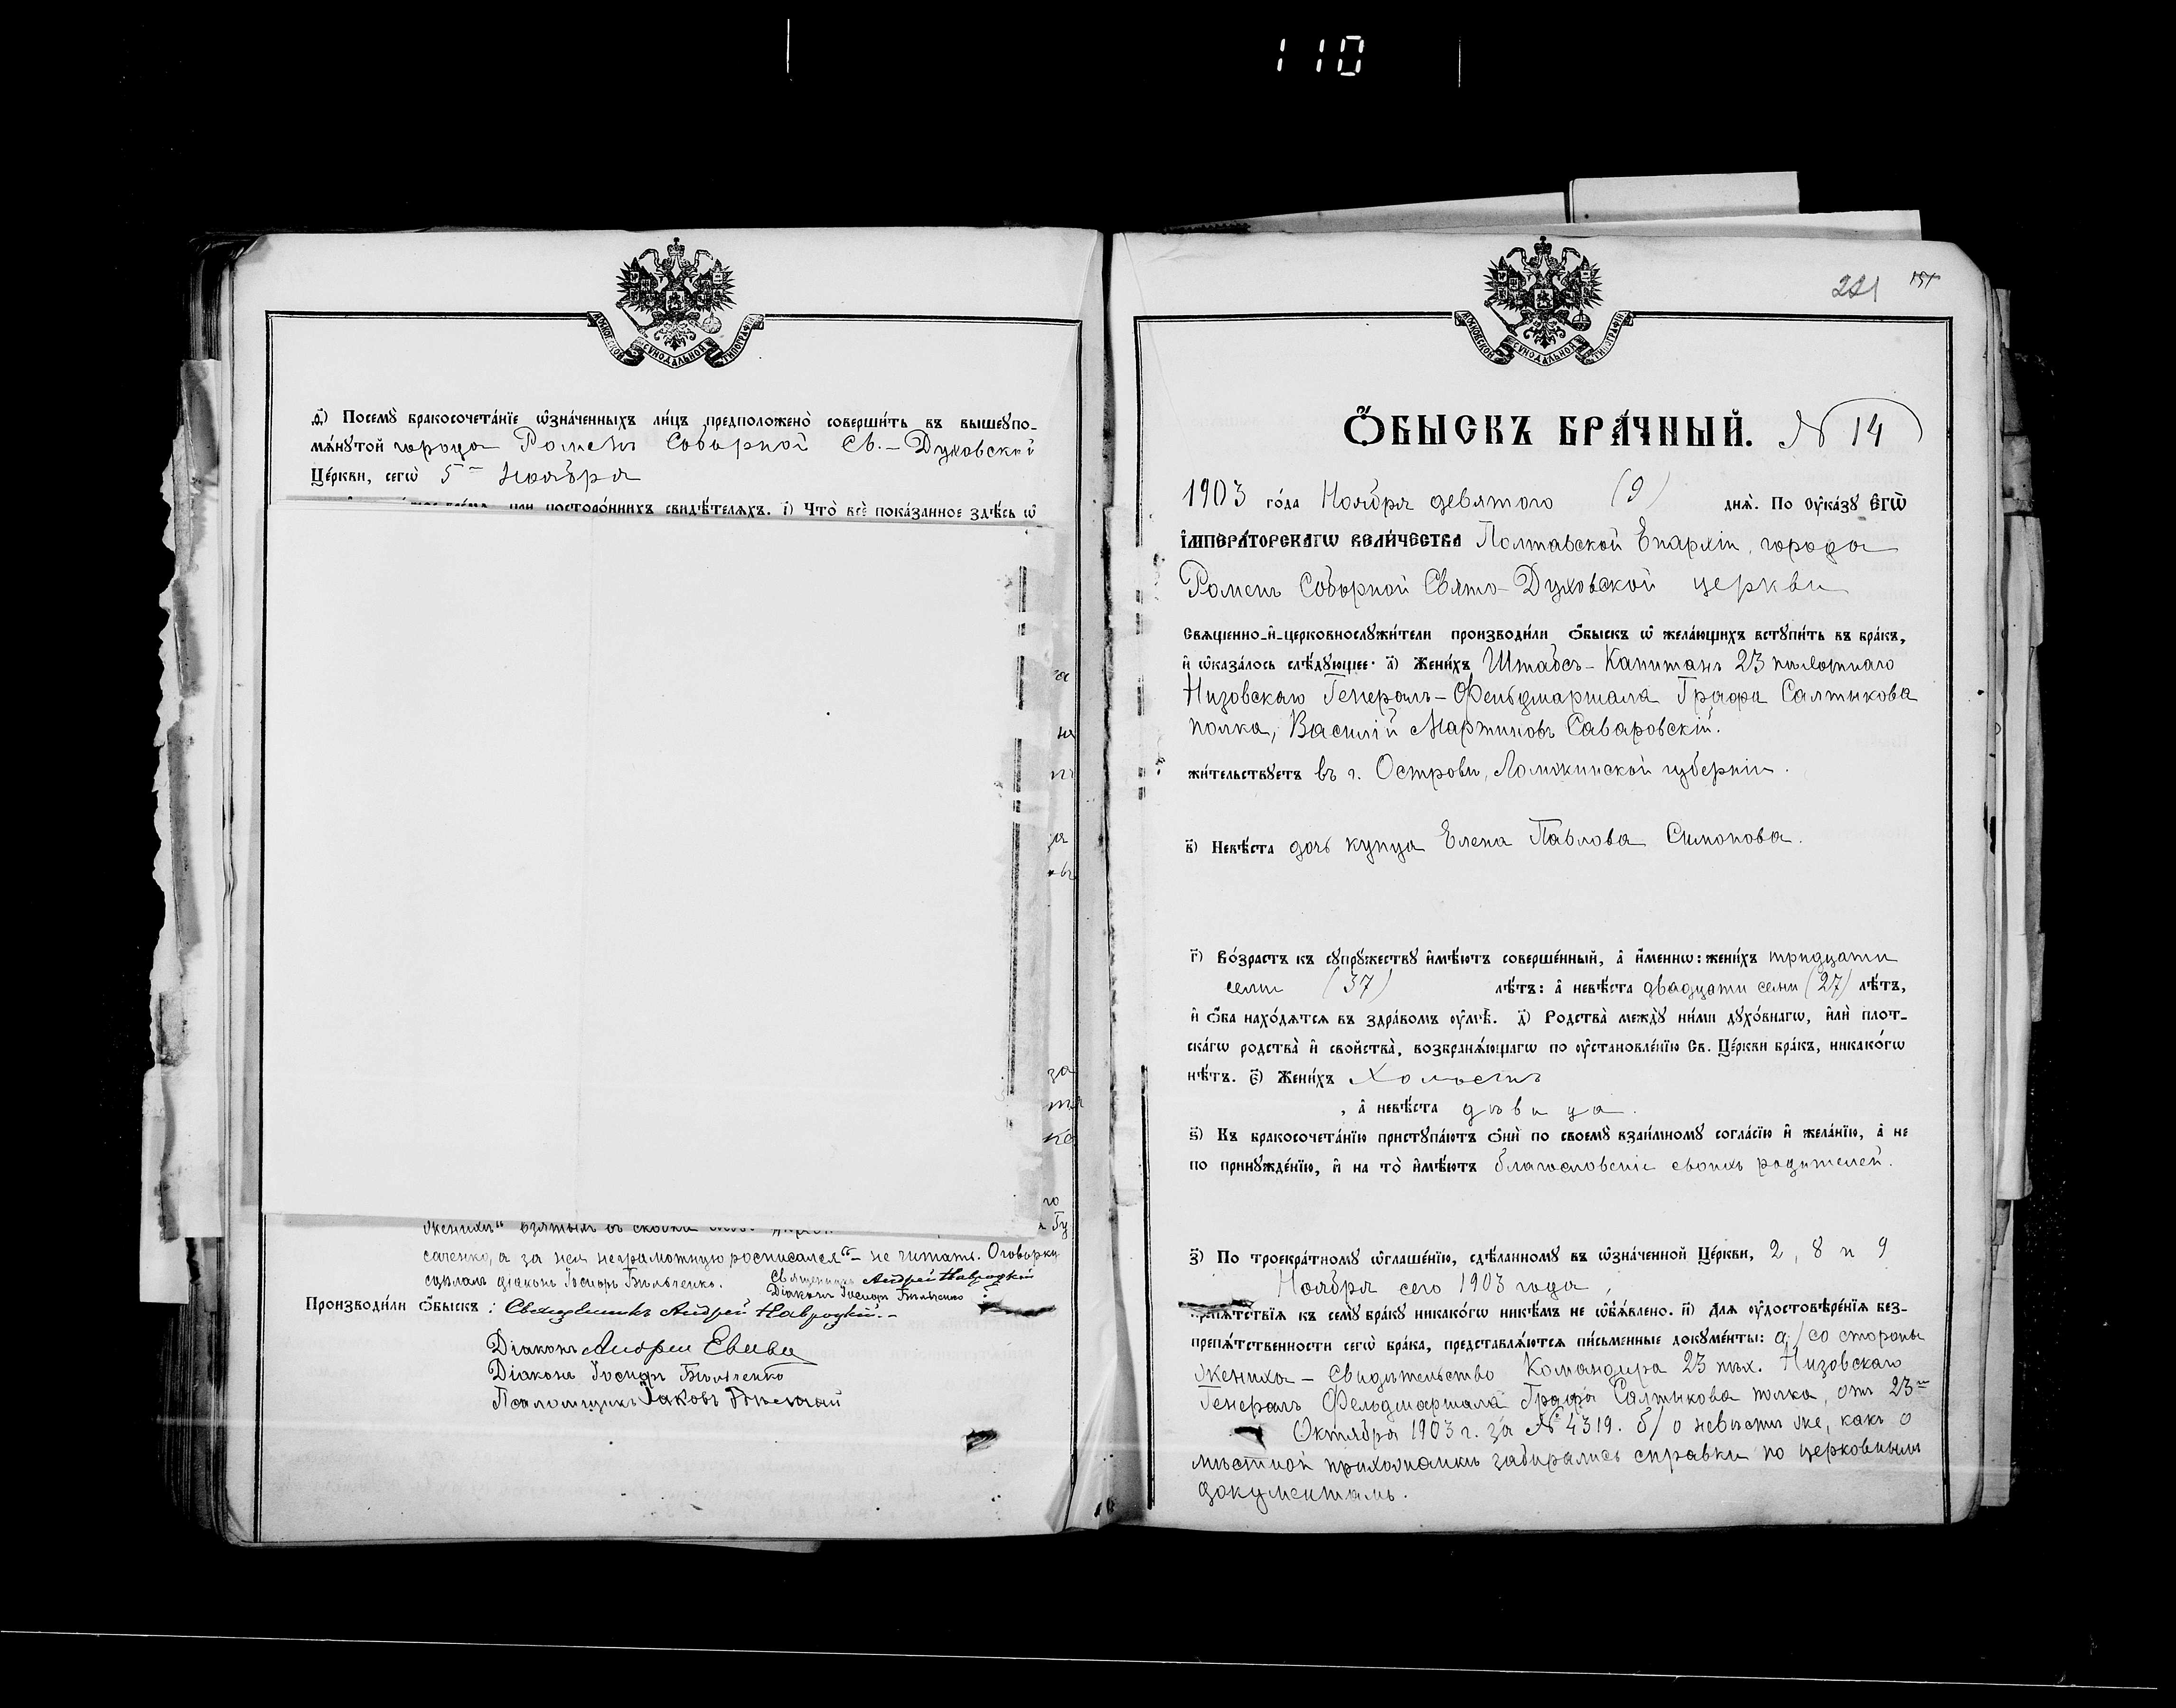 110
МОСКОВСКОЙ СѴНОДАЛЬНОЙ ТИПОГРАФІИ
д҃) Посемꙋ̀ бракосочета́нїе ѡ҆зна́ченныхъ ли́цъ предположено̀ соверши́ть въ вышеꙋпо-
мѧ́нꙋтой города Роменъ Соборной Св.-Духовской
Це́ркви, сегѡ̀ 5го Ноября
при посторо́ннихъ свидѣ́телѧхъ. і҃) Что̀ всѐ пока́занное здѣ́сь ѡ҆
женихъ" взятымъ въ скобки
саченко, а за нея неграмотную росписался" - не читать. Оговорку
сдѣлалъ діаконъ Іосифъ Бѣльченко. Священникъ Андрей Навродкій
Діаконъ Іосифъ Бѣльченко
Производи́ли ѻ҆́быскъ: Священникъ Андрей Навродкій.-
Діаконъ Андрей
Діаконъ Іосифъ Бѣльченко
Псаломщикъ Іаковъ
МОСКОВСКОЙ СѴНОДАЛЬНОЙ ТИПОГРАФІИ
221 151
Ѻ҆́БЫСКЪ БРА́ЧНЫЙ. № 14
1903 го́да Ноября девятого (9) днѧ̀. По ᲂу҆ка́зꙋ Є҆ГѠ̀
І҆МПЕРА́ТОРСКАГѠ ВЕЛИ́ЧЕСТВА Полтавской Епархіи, города
Роменъ Соборной Свято-Духовской церкви
Свѧще́нно-и҆-церковнослꙋжи́тели производи́ли ѻ҆́быскъ ѡ҆ жела́ющихъ встꙋпи́ть въ бра́къ,
и҆ ѡ҆каза́лось слѣ́дꙋющее: а҃) Жени́хъ Штабсъ-Капитанъ 23 пѣхотнаго
Низовскаго Генералъ-Фельдмаршала Графа Салтыкова
полка, Василій Мартиновъ Саваровскій.
жи́тельствꙋетъ въ г. Островѣ, Ломжинской губерніи.
в҃) Невѣ́ста дочь купца Елена Павлова Симонова.
г҃) Во́зрастъ къ сꙋпрꙋ́жествꙋ и҆мѣ́ютъ соверше́нный, а҆ и҆́меннѡ: жени́хъ тридцати
семи (37) лѣ́тъ: а҆ невѣ́ста двадцати семи (27) лѣ́тъ,
и҆ ѻ҆́ба нахо́дѧтсѧ въ здра́вомъ ᲂу҆мѣ̀. д҃) Родства̀ междꙋ̀ ни́ми дꙋхо́внагѡ, и҆лѝ плот-
ска́гѡ родства̀ и҆ свойства̀, возбранѧ́ющагѡ по ᲂу҆становле́нїю Св. Це́ркви бра́къ, никако́гѡ
нѣ́тъ. є҃) Жени́хъ Холостъ
, а҆ невѣ́ста дѣвица.
ѕ҃) Къ бракосочета́нїю пристꙋпа́ютъ ѻ҆нѝ по своемꙋ̀ взаи́мномꙋ согла́сїю и҆ жела́нїю, а҆ не
по принꙋжде́нїю, и҆ на то̀ и҆мѣ́ютъ благословеніе своихъ родителей.
з҃) По троекра́тномꙋ ѡ҆глаше́нїю, сдѣ́ланномꙋ въ ѡ҆зна́ченной Це́ркви, 2, 8 и 9
Ноября сего 1903 года,
препѧ́тствїѧ къ семꙋ̀ бра́кꙋ никако́гѡ никѣ́мъ не ѡ҆б̾ѧ́влено. и҃) Длѧ ᲂу҆достовѣре́нїѧ без-
препѧ́тственности сегѡ̀ бра́ка, представлѧ́ютсѧ пи́сьменные докꙋме́нты: а/ со стороны
жениха - Свидѣтельство Командира 23 пѣх. Низовскаго
Генералъ Фельдмаршала Графа Салтыкова полка, отъ 23го
Октября 1903 г. за № 4319. б/ о невѣстѣ же, какъ о
мѣстной прихожанкѣ забирались справки по церковнымъ
документамъ.